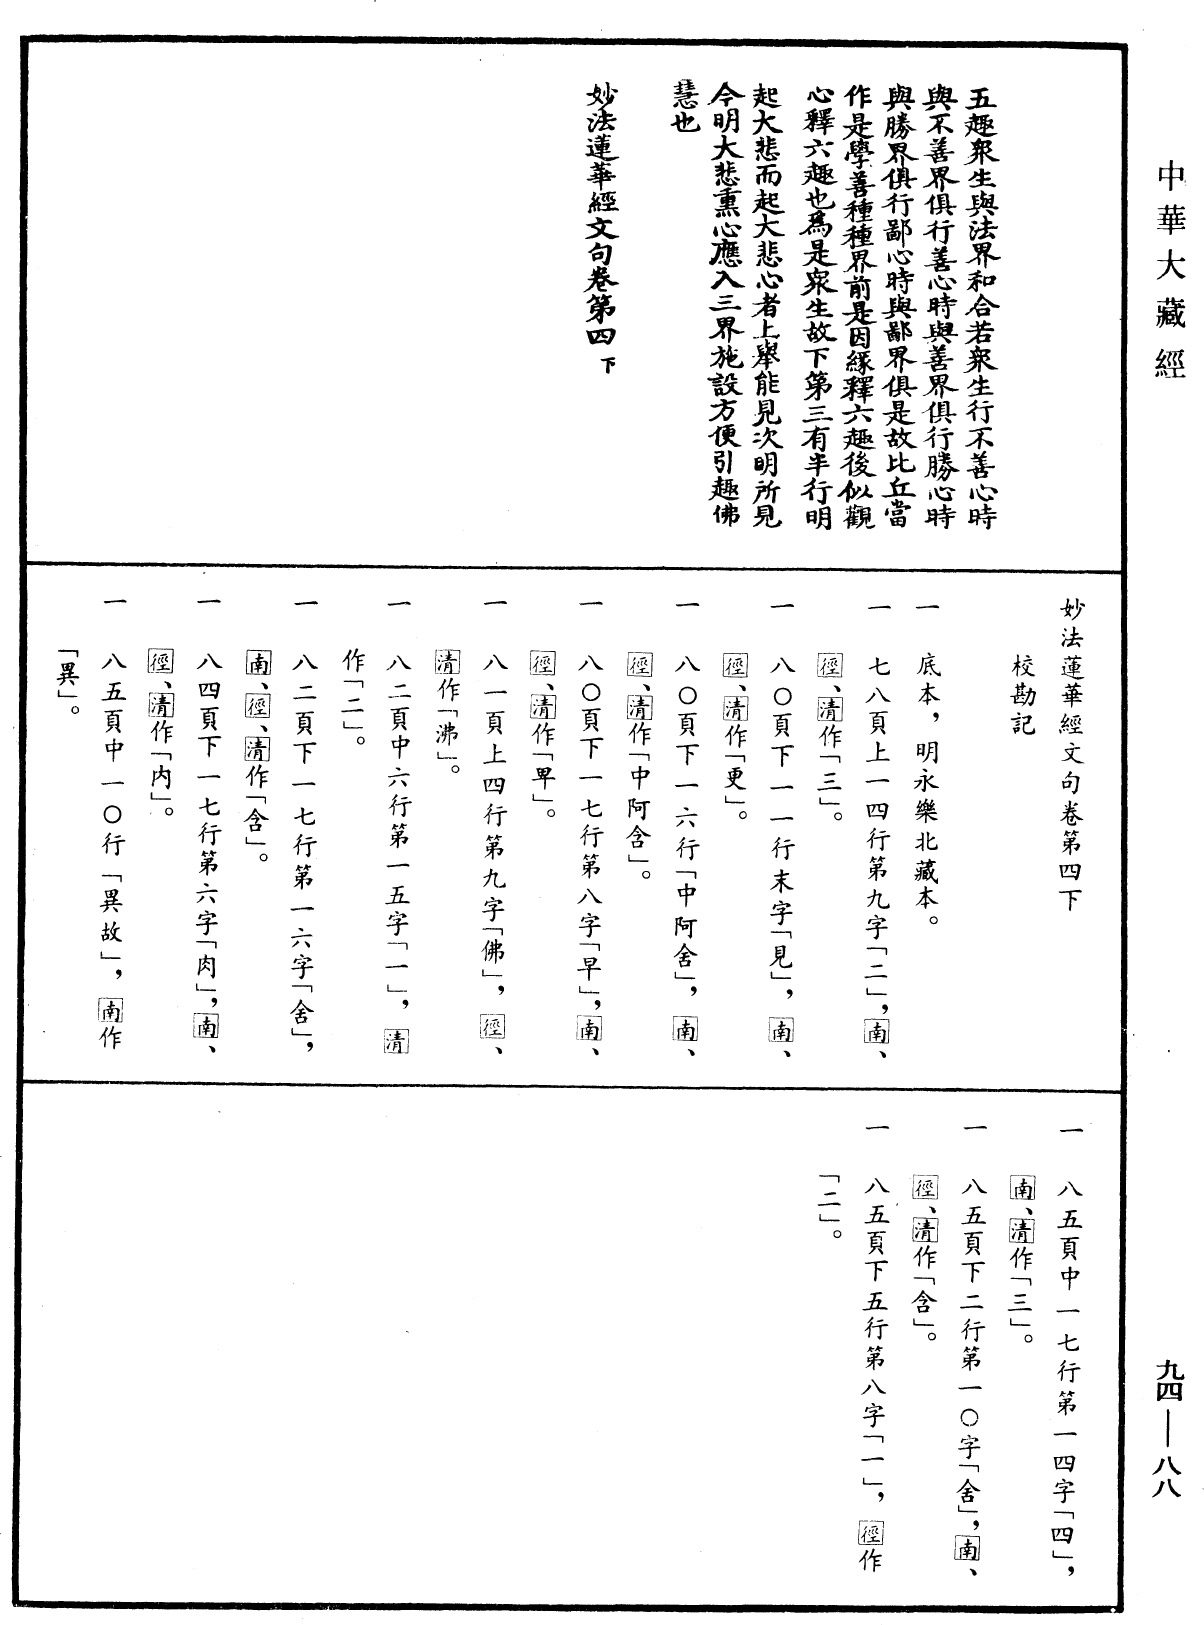 中華大藏經
五趣衆生與法界和合若衆生行不善心時
與不善界俱行善心時與善界俱行勝心時
與勝界俱行鄙心時與鄙界俱是故比丘當
作是學善種種界前是因緣釋六趣後似觀
心釋六趣也爲是衆生故下第三有半行明
起大悲而起大悲心者上舉能見次明所見
今明大悲熏心應入三界施設方便引趣佛
慧也
妙法蓮華經文句卷第四下
妙法蓮華經文句卷第四下
校勘記
一 底本，明永樂北藏本。
一 七八頁上一四行第九字「二」，南、
徑、清作「三」。
一 八〇頁下一一行末字「見」，南、
徑、清作「更」。
一 八〇頁下一六行「中阿舍」，南、
徑、清作「中阿含」。
一 八〇頁下一七行第八字「早」，南、
徑、清作「畢」。
一 八一頁上四行第九字「佛」，徑、
清作「沸」。
一 八二頁中六行第一五字「一」，清
作「二」。
一 八二頁下一七行第一六字「舍」，
南、徑、清作「含」。
一 八四頁下一七行第六字「肉」，南、
徑、清作「内」。
一 八五頁中一〇行「異故」，南作
「異」。
一 八五頁中一七行第一四字「四」，
南、清作「三」。
一 八五頁下二行第一〇字「舍」，南、
徑、清作「含」。
一 八五頁下五行第八字「一」，徑作
「二」。
九四—八八